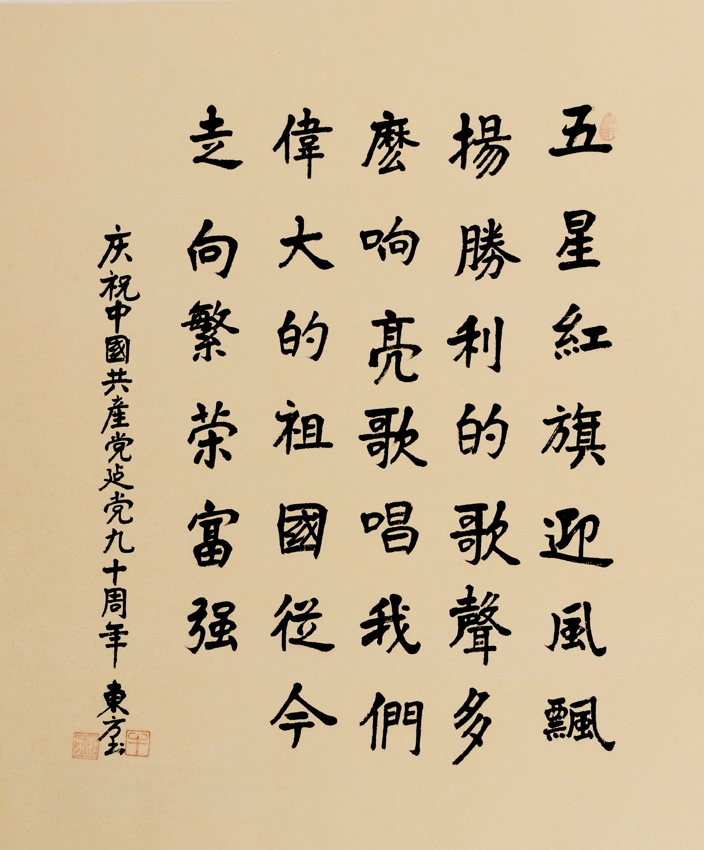 五星紅旗迎風飄
揚勝利的歌聲多
麽响亮歌唱我們
偉大的祖國從今
走向繁荣富强
庆祝中國共產党建党九十周年 東方玉